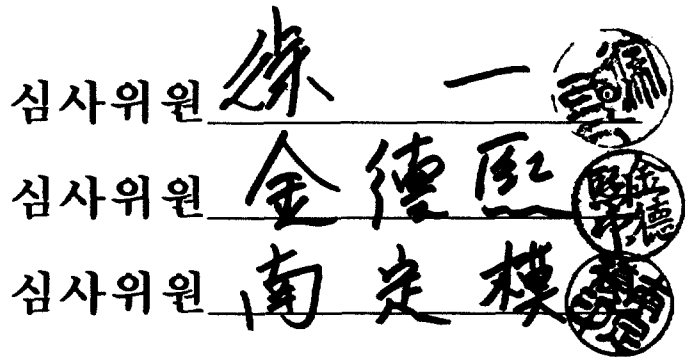 심사위원 徐 一
심사위원 金德熙
심사위원 南定模